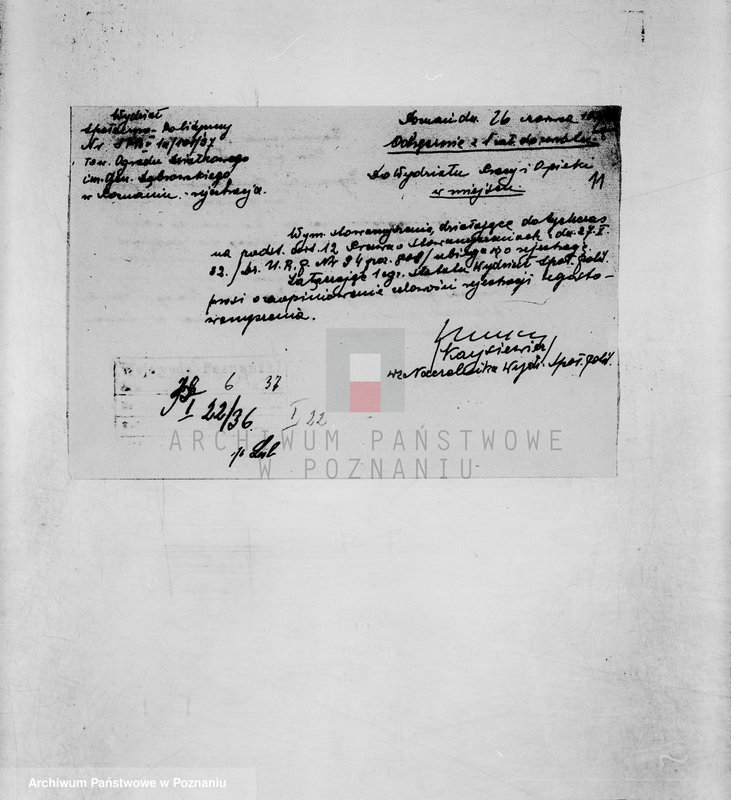 Wydział
Społeczno-Policyjny
Nr
Tow. Ogrodu Działkowego
im. Gen. Dąbrowskiego
w Poznaniu. rejestracja.
Poznań dn. 26 czerwca
Odręcznie z
Do Wydziału Pracy i Opieki
w miejscu.
11
Wym. stowarzyszenie, działające dotychczas
na podst. art. 12 Prawa o Stowarzyszeniach z dn. 27.X.
32. /Dz. U. R. P. Nr 94 poz. 808/ ubiega się o rejestrację.
Załączając 1 egz. Statutu Wydział Społ. Polic.
prosi o zaopiniowanie celowości rejestracji tegoż sto-
warzyszenia.
/Kaysiewicz/
wz Naczelnika Wydz. Społ. Polic.
Poznań
6 37
I 22/36
I 22
ARCHIWUM PAŃSTWOWE
W POZNANIU
Archiwum Państwowe w Poznaniu